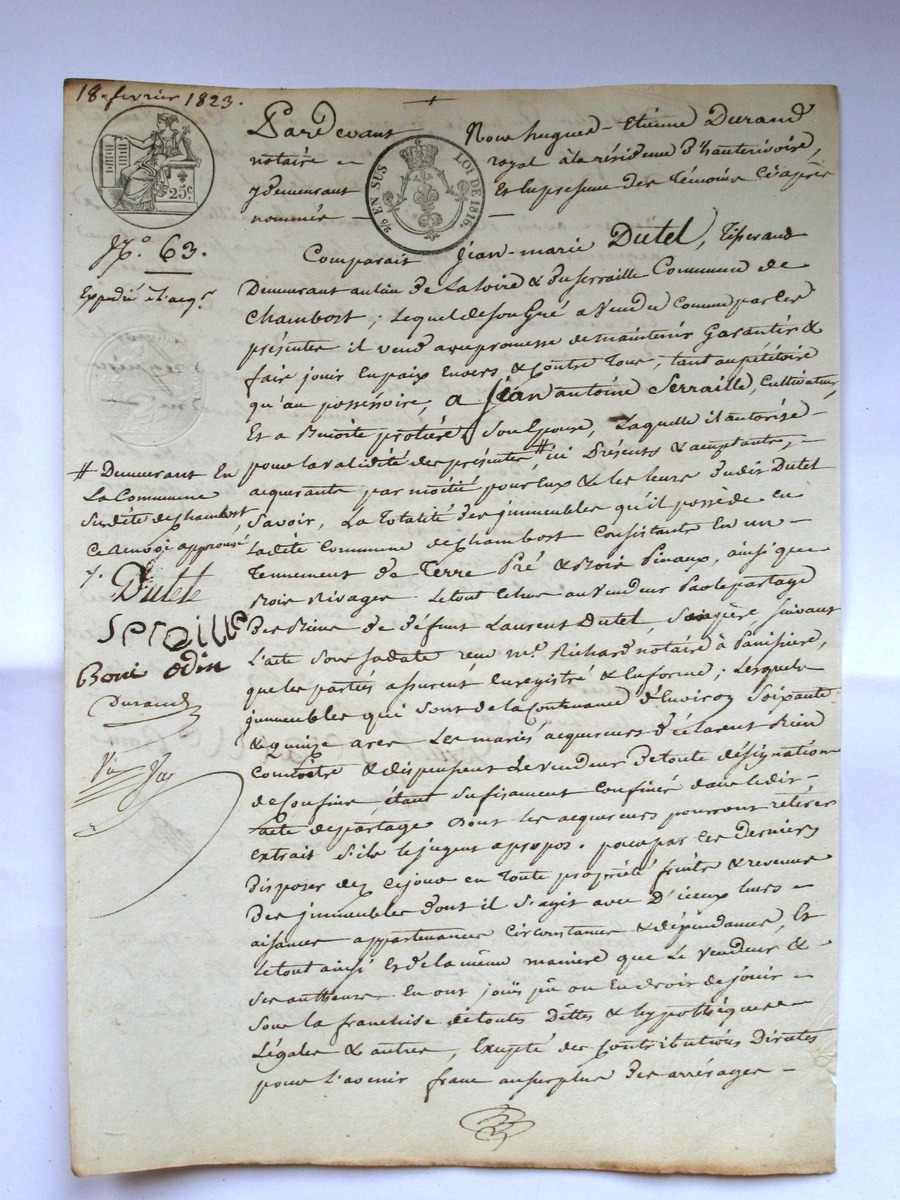 18 février 1823.
Pardevant Nous hugues-Etienne Durand
notaire royal à la résidence d'hauterivoire,
y demeurant Et en presence des Témoins Ci après
nommés
25c
25 EN SUS LOI DE 1816.
N.° 63.
Expédié
Comparait Jean-marie Dutel, Tisserand
Demeurant au lieu De La loire & du Serraille Commune de
Chambost ; Lequel de Son Gré a Vendu Comme par Ces
présentes il vend avec promesse de maintenir Garantir &
faire jouir En paix Envers & Contre Tous, tant au pétitoire
qu'au possessoire, a Jean antoine Serraille, Cultivateur,
Et a Benoite Son Epouse, Laquelle il autorise
pour la validité des présentes # ici Présents & acceptants,
acquerants par moitié pour Eux & les leurs Dudit Dutel
Savoir, La Totalité des jmmeubles qu'il possède en
Ladite Commune de Chambost Consistants En un
Tennement de Terre Pré & Bois Pinaux, ainsi que
Bois Rivages. Le tout Echu au Vendeur Par le partage
Des Biens De Défunt Laurent Dutel, Son père, Suivant
L'acte Sous Sa date reçu m.e Richard notaire à Panissière,
que les parties assurent Enregistré & En forme ; Lesquels
jmmeubles qui Sont de la Contenance d'Environ Soixante
& quinze ares Les mariés acquereurs Déclarent Bien
Connoître & dispensent Le vendeur De toute désignation
de Confins étant Sufisament Confinés dans le dit
acte de partage Dont les acquereurs pourront retirer
Extrait S'ils le jugent apropos. pour par Ces Derniers
Disposer dez Cejour en Toute propriété fruits & revenus
Des jmmeubles dont il S'agit avec D'iceux leurs
aisances appartenances Circonstances & dépendances, Et
Le tout ainsi Et de la même manière que Le Vendeur &
Ses autheurs En ont jouï pû ou En droit de jouir
Sous la franchise de toutes Dettes & hypothèques
Légales & autres, Excepté des Contributions Directes
pour L'avenir franc au Surplus Des arrérages
# Demeurant En
La Commune
Sus dite de Chambost,
Ce Renvoi approuvé
Dutel
Seraille
Boni Odin
Durand